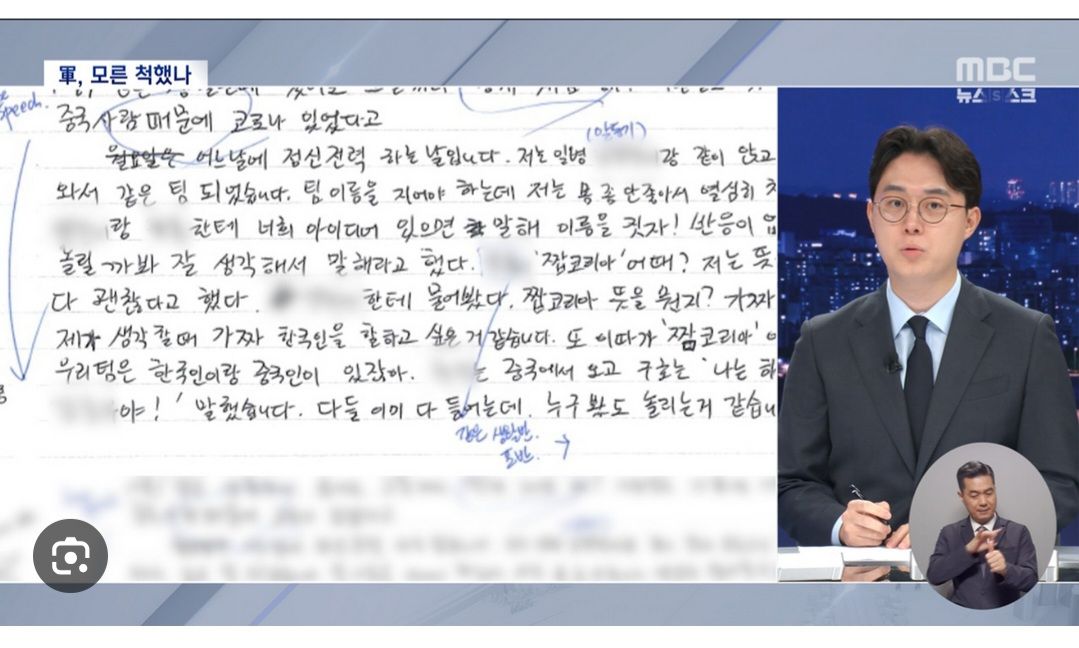 軍, 모른 척했나
MBC
뉴스데스크
speech.
중국사람때문에 코로나 있었다고
(알동기)
월요일은 어느날에 정신전력 하는날입니다. 저는 일병 강 같이 앉고
와서 같은 팅 되었습니다. 팀이름을 지어야 하는데 저는 안좋아서 열심히
랑 한테 너희 아이디어 있으면 말해 이름을 짓자! 반응이
놀릴까봐 잘 생각해서 말해라고 했다. '짭코리아'어때? 저는 뜻
다 괜찮다고 했다. 한테 물어봤다. 짭코리아 뜻을 뭔지? 가짜
제가 생각할때 가짜 한국인을 말하고 싶은 거 같습니다. 또 이따가 '짬코리아'
우리팀은 한국인이랑 중국인이 있잖아. 는 중국에서 오고 구호는 '나는
야!' 말했습니다. 다들 이미 다 들어는데. 누구 봐도 놀리는거 같습니
같은 생활반.